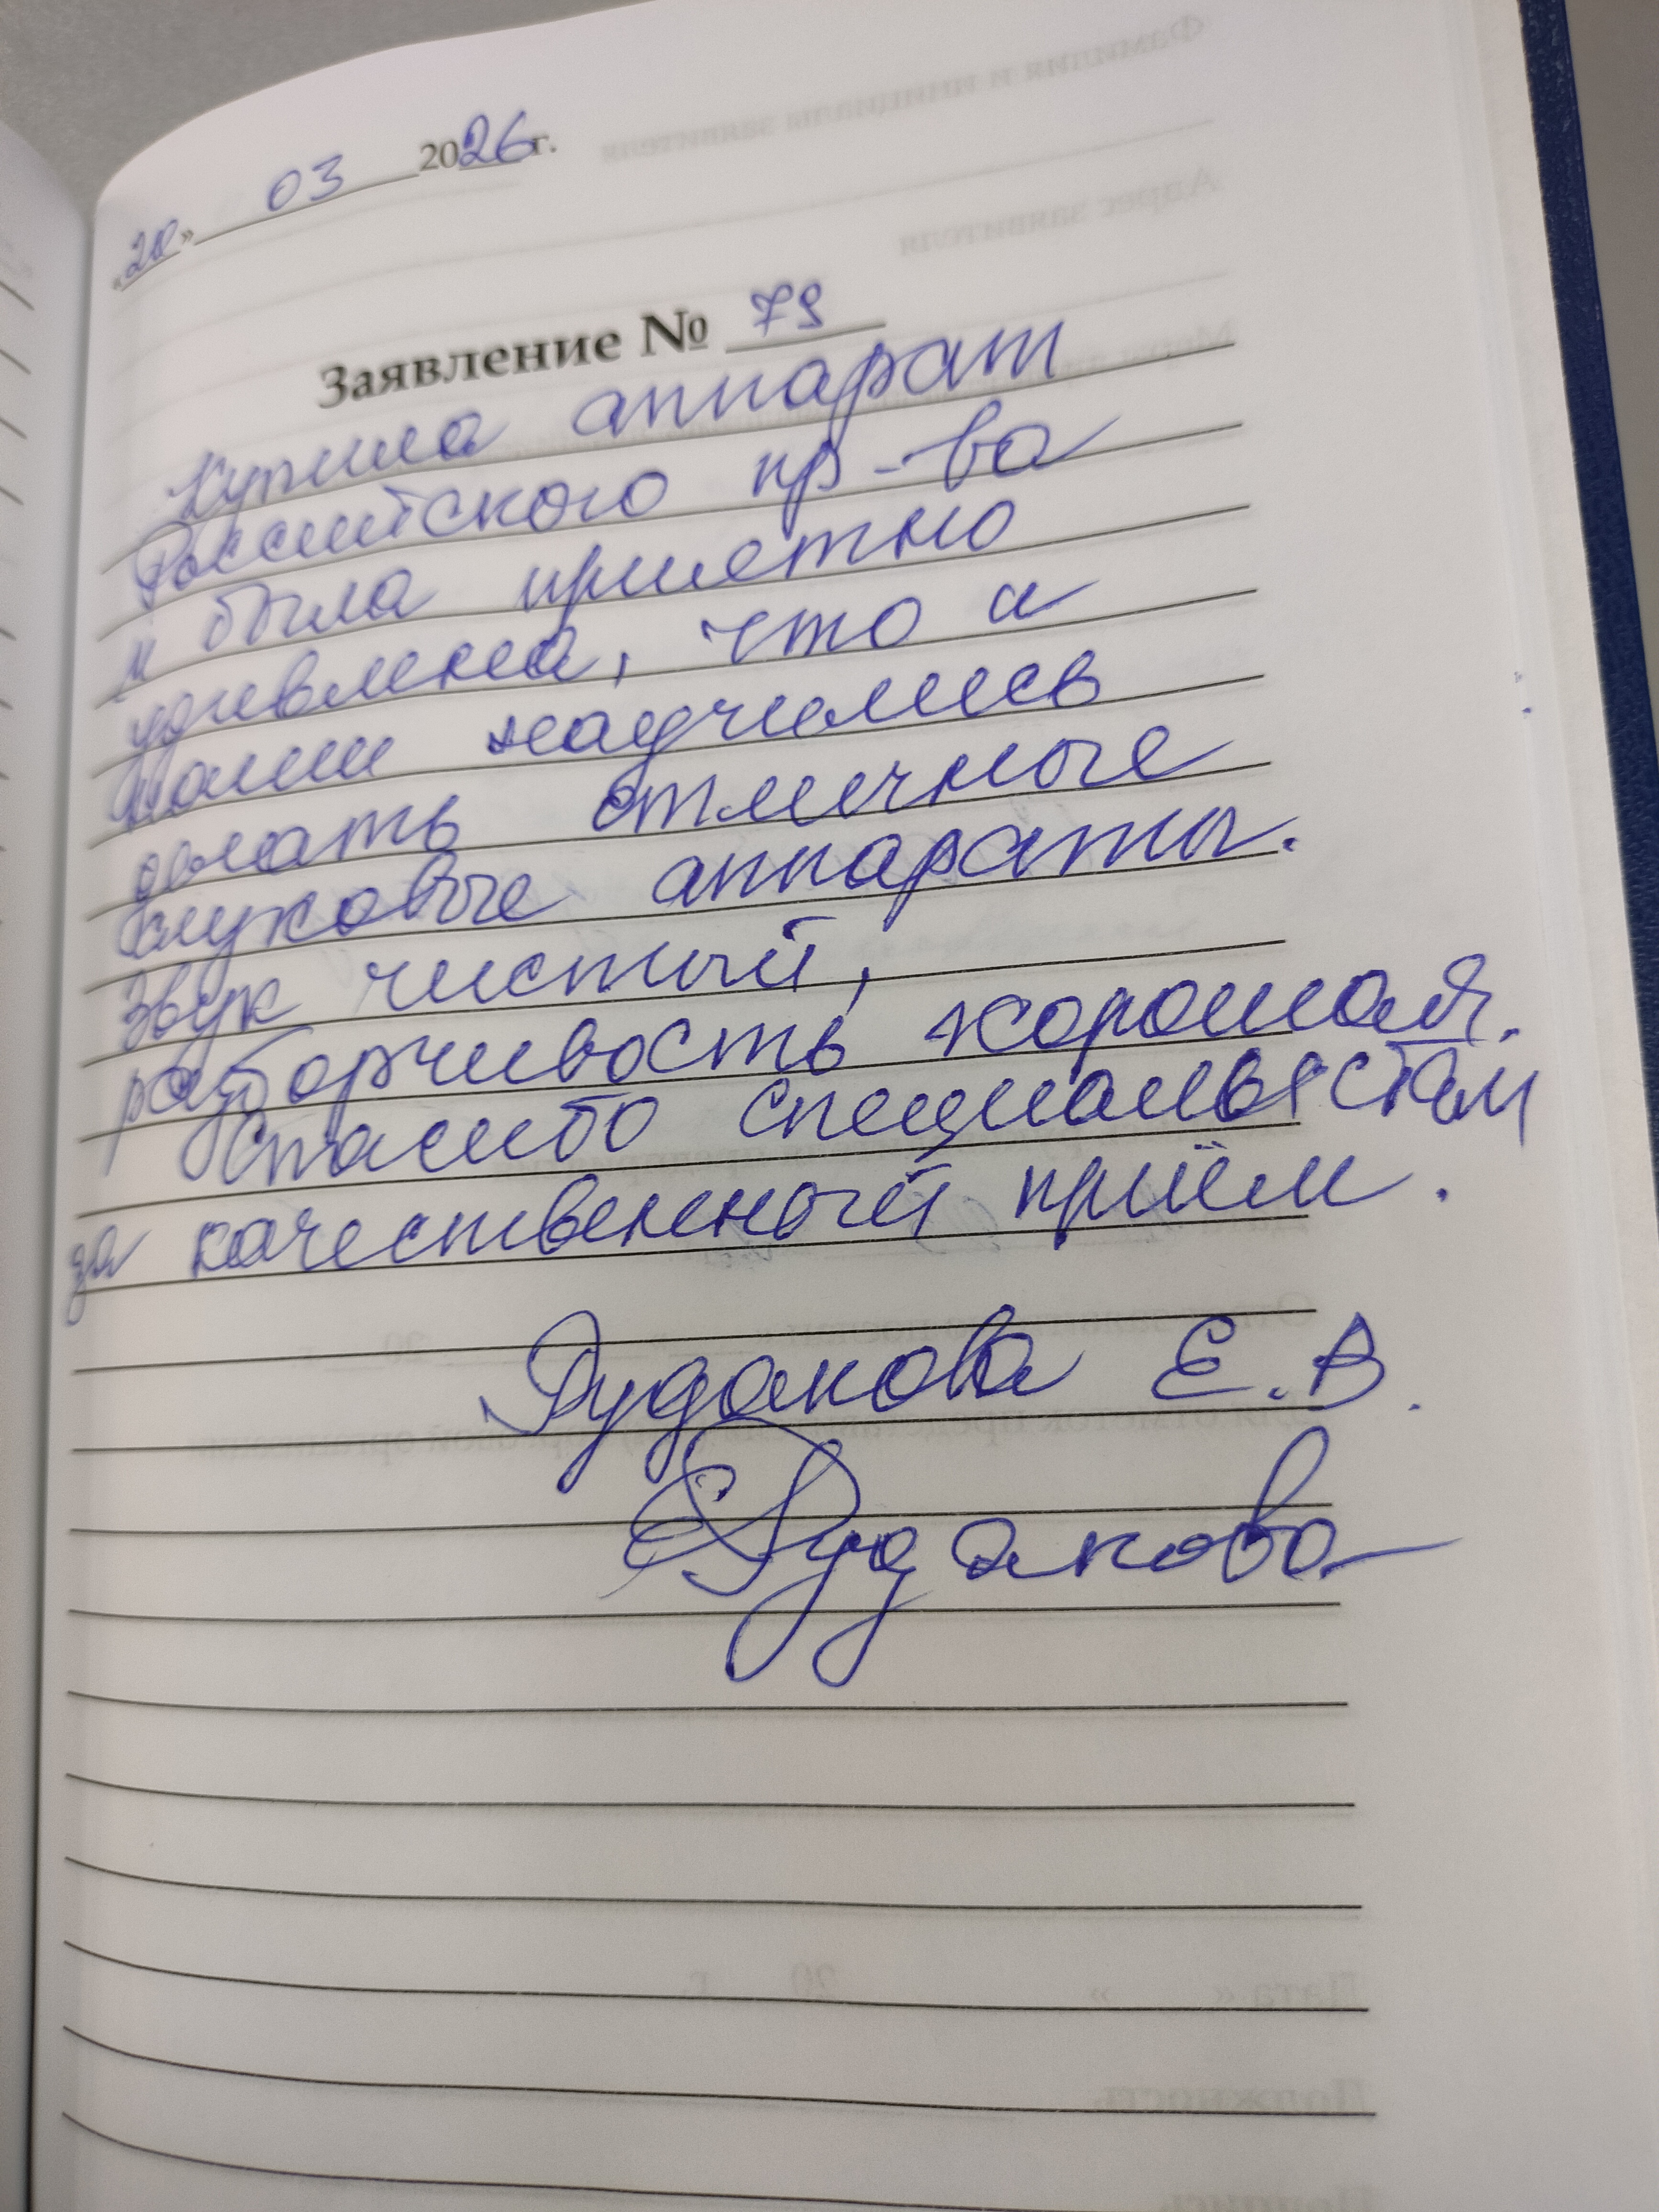 «20» 03 2026 г.
Заявление № 79
Купила аппарат
Российского пр-ва
и была приятно
удивлена, что и
наши научились
делать отличные
слуховые аппараты.
Звук чистый,
разборчивость хорошая.
Спасибо специалистам
за качественный приём.
Рудакова Е.В.
Рудакова